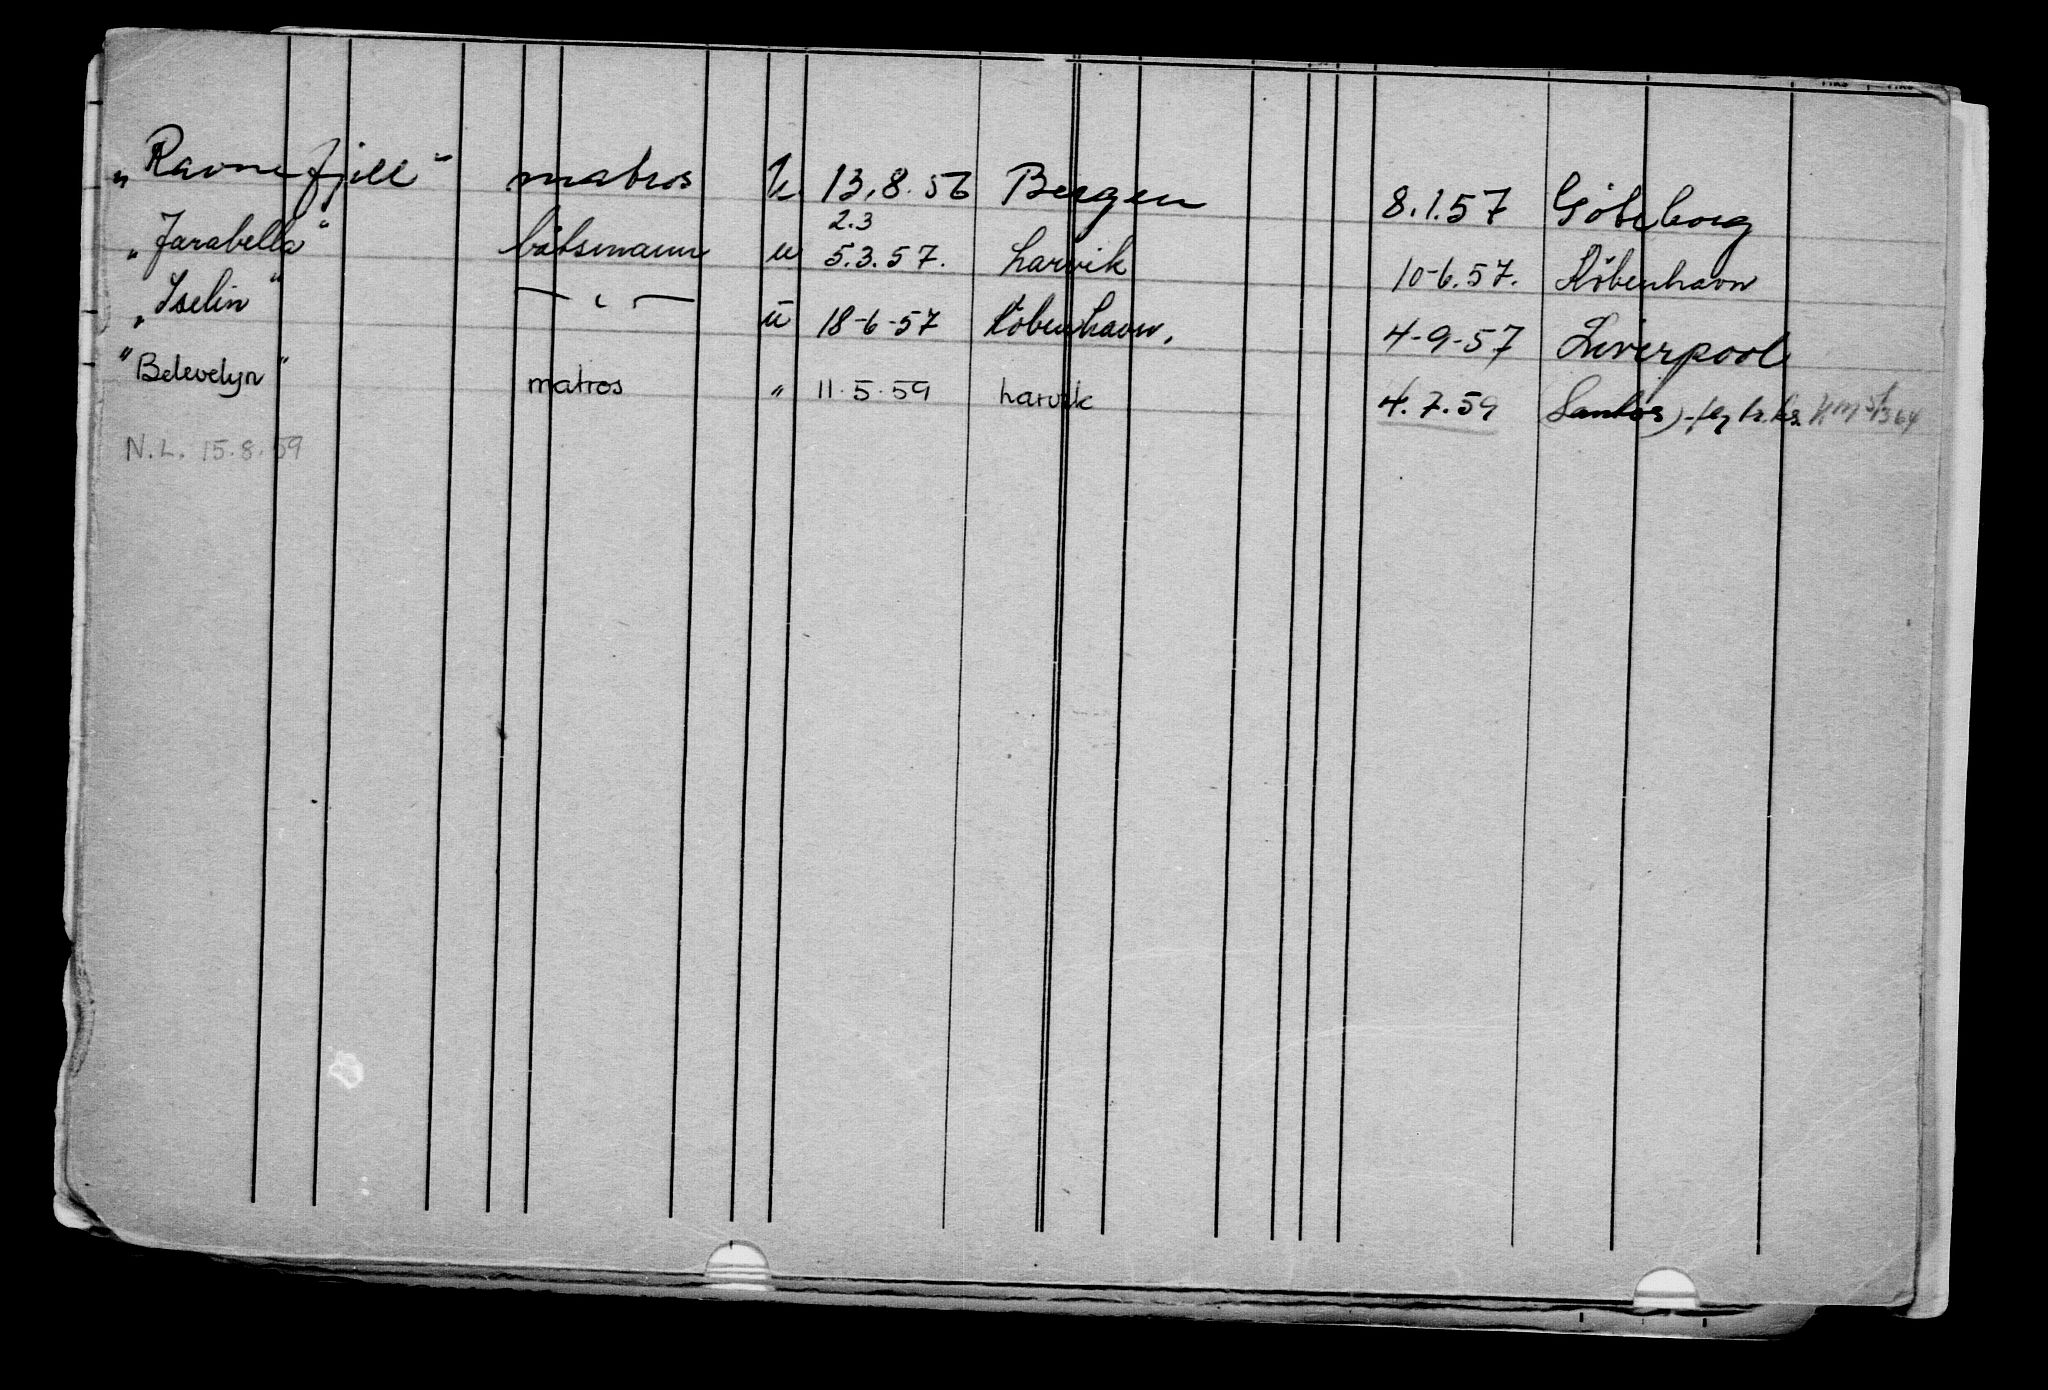 „Ravnefjell" matros u. 13.8.56 Bergen 8.1.57 Göteborg
2.3
„Jarabella" båtsmann u 5.3.57. Larvik 10-6.57. København
„Iselin" — " — u 18-6-57 København. 4-9-57 Liverpool
"Belevelyn" matros " 11.5.59 Larvik 4.7.59 Santos)
N.L. 15.8.59